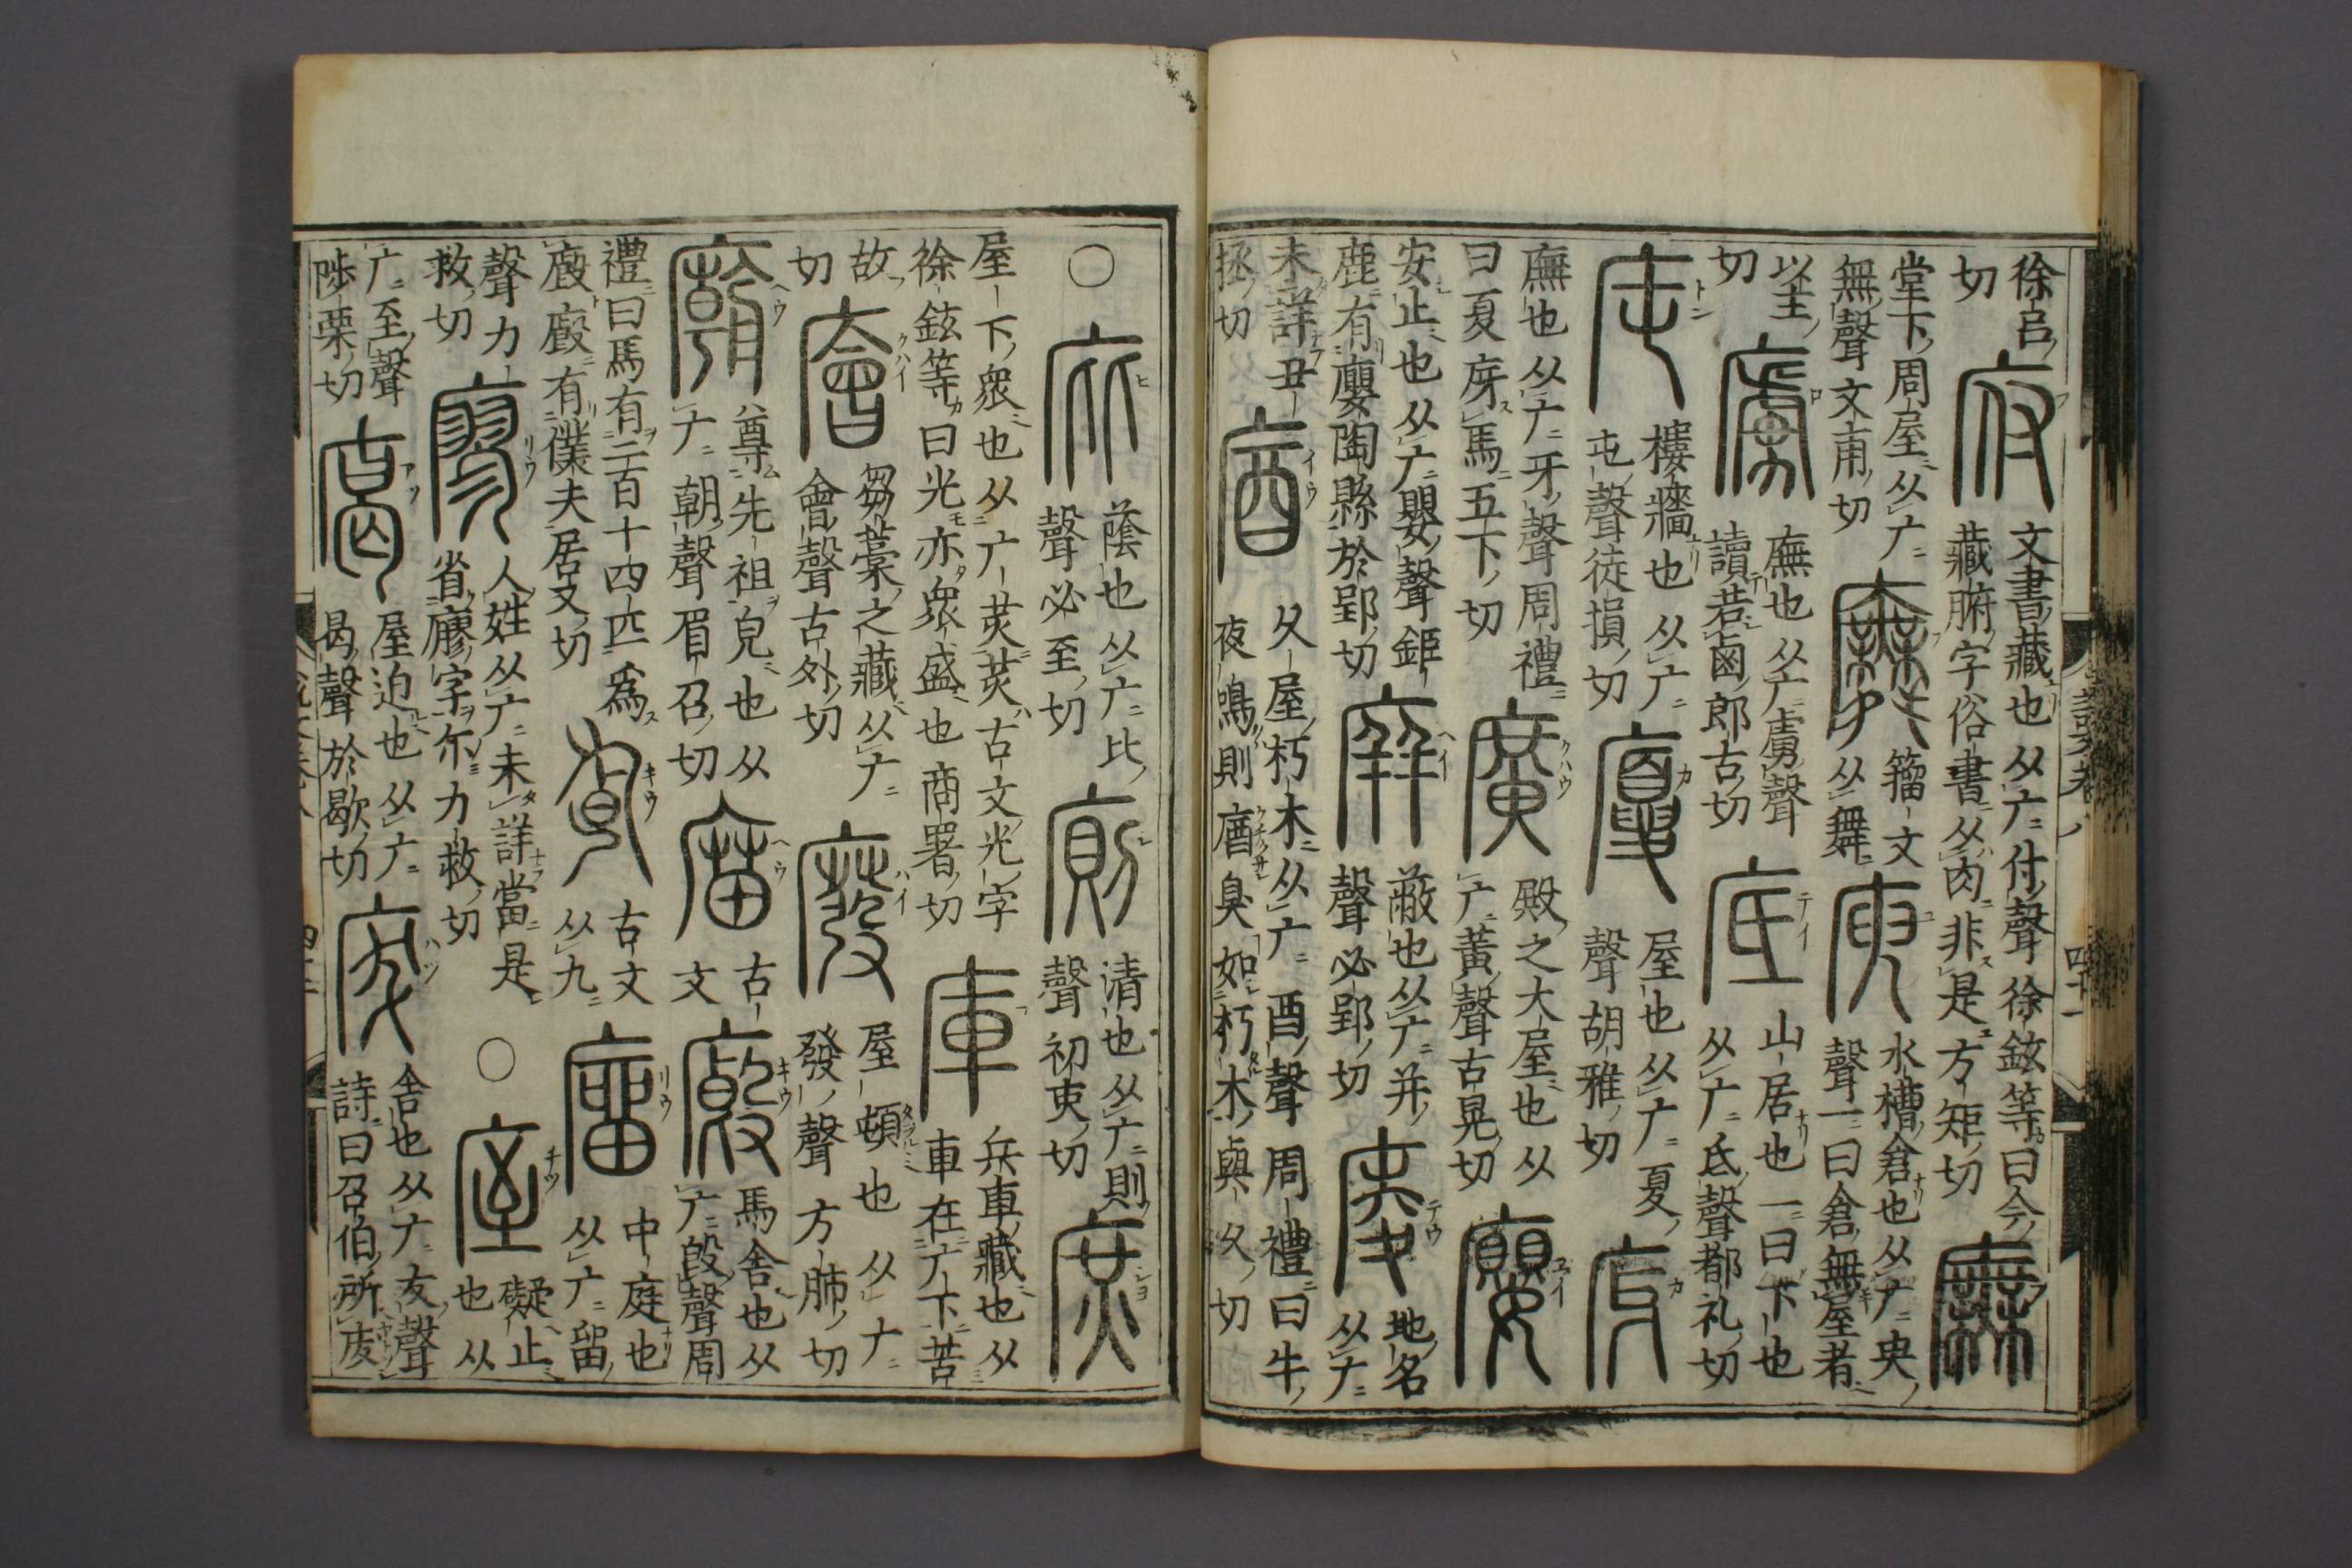 說文卷八
四十一
徐呂
切
府
文書藏也从广付聲徐鉉等曰今
藏腑字俗書从肉非是方矩切
廡
堂下周屋从广
無聲文甫切
籀文
从舞
庾
水槽倉也从广臾
聲一曰倉無屋者
以主
切
廡也从广虜聲
讀若鹵郎古切
底
山居也一曰下也
从广氐聲都礼切
庉
樓牆也从广
屯聲徒損切
廈
屋也从广夏
聲胡雅切
庌
廡也从广牙聲周禮
曰夏庌馬五下切
廣
殿之大屋也从
广黃聲古晃切
廮
安止也从广嬰聲鉅
鹿有廮陶縣於郢切
庰
蔽也从广并
聲必郢切
庱
地名
从广
未詳丑
拯切
庮
久屋朽木从广酉聲周禮曰牛
夜鳴則庮臭如朽木與久切
〇
庇
蔭也从广比
聲必至切
廁
清也从广則
聲初吏切
庶
屋下衆也从广炗炗古文光字
徐鉉等曰光亦衆盛也商署切
庫
兵車藏也从
車在广下苦
故
切
廥
芻藁之藏从广
會聲古外切
廢
屋頓也从广
發聲方肺切
廟
尊先祖皃也从
广朝聲眉召切
庿
古
文
廄
馬舍也从
广㲃聲周
禮曰馬有二百十四匹為
廄廄有僕夫居又切
古文
从九
廇
中庭也
从广留
聲力
救切
廖
人姓从广未詳當是
省廫字尒力救切
〇
庢
礙止
也从
广至聲
陟栗切
廅
屋迫也从广
曷聲於歇切
废
舍也从广犮聲
詩曰召伯所废